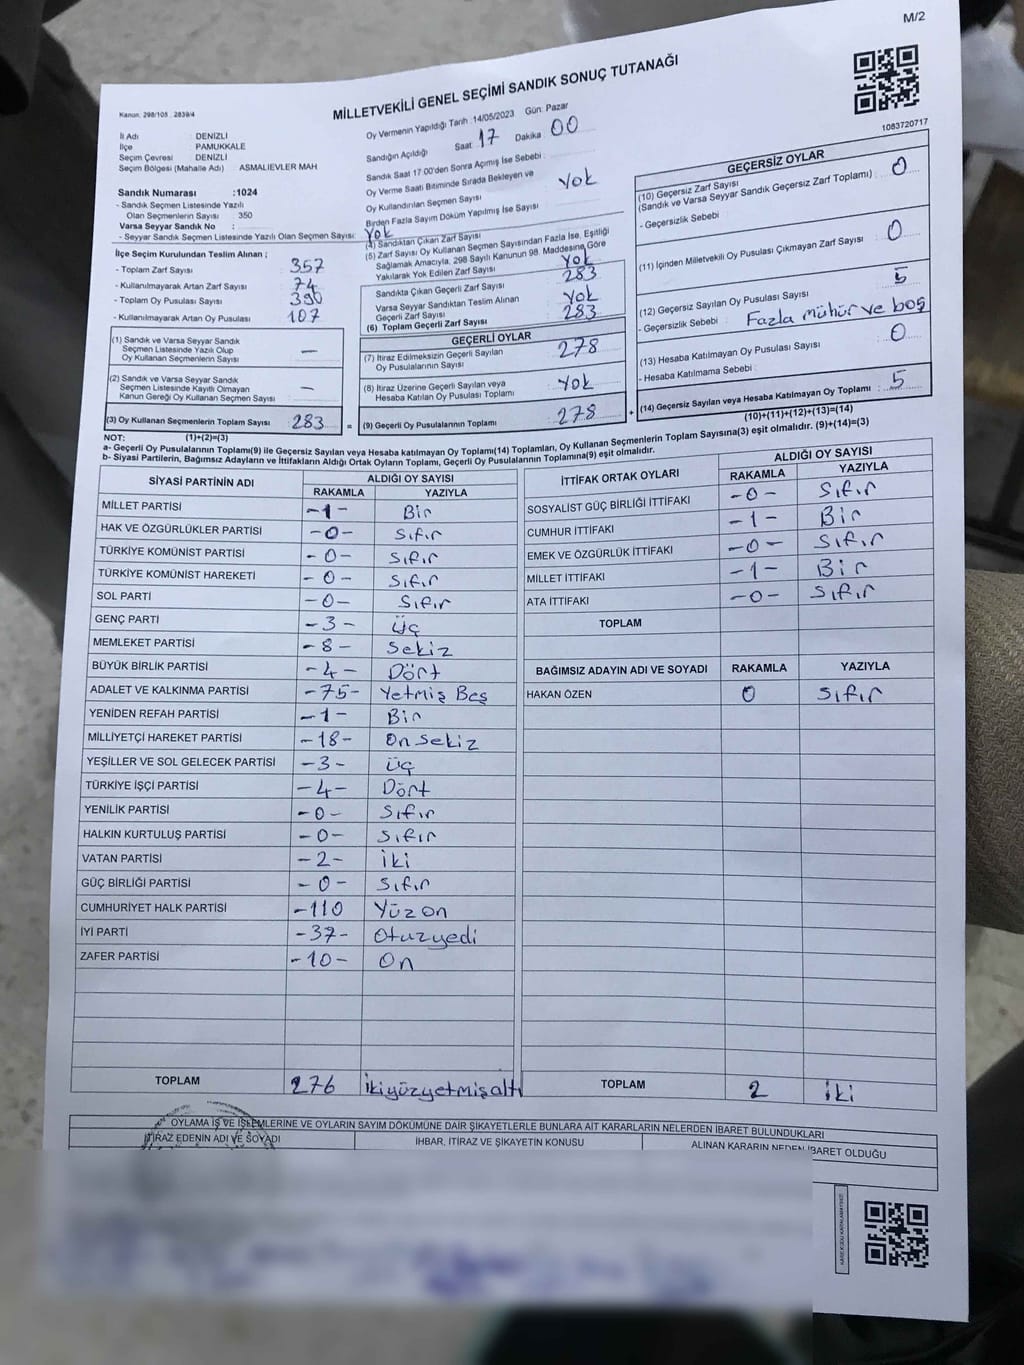 M/2
Kanun: 298/105 : 2839/4
MİLLETVEKİLİ GENEL SEÇİMİ SANDIK SONUÇ TUTANAĞI
1083720717
İl Adı : DENİZLİ
İlçe : PAMUKKALE
Seçim Çevresi : DENİZLİ
Seçim Bölgesi (Mahalle Adı) : ASMALIEVLER MAH
Sandık Numarası :1024
- Sandık Seçmen Listesinde Yazılı
Olan Seçmenlerin Sayısı : 350
Varsa Seyyar Sandık No :
- Seyyar Sandık Seçmen Listesinde Yazılı Olan Seçmen Sayısı:
İlçe Seçim Kurulundan Teslim Alınan ;
- Toplam Zarf Sayısı : 357
- Kullanılmayarak Artan Zarf Sayısı : 74
- Toplam Oy Pusulası Sayısı : 390
- Kullanılmayarak Artan Oy Pusulası : 107
(1) Sandık ve Varsa Seyyar Sandık
Seçmen Listesinde Yazılı Olup
Oy Kullanan Seçmenlerin Sayısı : —
(2) Sandık ve Varsa Seyyar Sandık
Seçmen Listesinde Kayıtlı Olmayan
Kanun Gereği Oy Kullanan Seçmen Sayısı : —
(3) Oy Kullanan Seçmenlerin Toplam Sayısı : 283
Oy Vermenin Yapıldığı Tarih :14/05/2023 Gün: Pazar
Sandığın Açıldığı Saat : 17 Dakika : 00
Sandık Saat 17 00'den Sonra Açımış İse Sebebi :
Oy Verme Saati Bitiminde Sırada Bekleyen ve
Oy Kullandırılan Seçmen Sayısı : Yok
Birden Fazla Sayım Döküm Yapılmış İse Sayısı :
Yok
(4) Sandıktan Çıkan Zarf Sayısı
(5) Zarf Sayısı Oy Kullanan Seçmen Sayısından Fazla İse, Eşitliği
Sağlamak Amacıyla, 298 Sayılı Kanunun 98. Maddesine Göre
Yakılarak Yok Edilen Zarf Sayısı : Yok
Sandıkta Çıkan Geçerli Zarf Sayısı : 283
Varsa Seyyar Sandıktan Teslim Alınan
Geçerli Zarf Sayısı : Yok
(6) Toplam Geçerli Zarf Sayısı : 283
GEÇERLİ OYLAR
(7) İtiraz Edilmeksizin Geçerli Sayılan
Oy Pusulalarının Sayısı : 278
(8) İtiraz Üzerine Geçerli Sayılan veya
Hesaba Katılan Oy Pusulası Toplamı : Yok
(9) Geçerli Oy Pusulalarının Toplamı : 278
GEÇERSİZ OYLAR
(10) Geçersiz Zarf Sayısı
(Sandık ve Varsa Seyyar Sandık Geçersiz Zarf Toplamı) : 0
- Geçersizlik Sebebi :
(11) İçinden Milletvekili Oy Pusulası Çıkmayan Zarf Sayısı : 0
(12) Geçersiz Sayılan Oy Pusulası Sayısı : 5
- Geçersizlik Sebebi : Fazla mühür ve boş
(13) Hesaba Katılmayan Oy Pusulası Sayısı : 0
- Hesaba Katılmama Sebebi :
(14) Geçersiz Sayılan veya Hesaba Katılmayan Oy Toplamı : 5
NOT: (1)+(2)=(3) (10)+(11)+(12)+(13)=(14)
a- Geçerli Oy Pusulalarının Toplamı(9) ile Geçersiz Sayılan veya Hesaba katılmayan Oy Toplamı(14) Toplamları, Oy Kullanan Seçmenlerin Toplam Sayısına(3) eşit olmalıdır. (9)+(14)=(3)
b- Siyasi Partilerin, Bağımsız Adayların ve İttifakların Aldığı Ortak Oyların Toplamı, Geçerli Oy Pusulalarının Toplamına(9) eşit olmalıdır.
SİYASİ PARTİNİN ADI ALDIĞI OY SAYISI
RAKAMLA YAZIYLA
MİLLET PARTİSİ -1- Bir
HAK VE ÖZGÜRLÜKLER PARTİSİ -0- Sıfır
TÜRKİYE KOMÜNİST PARTİSİ -0- Sıfır
TÜRKİYE KOMÜNİST HAREKETİ -0- Sıfır
SOL PARTİ -0- Sıfır
GENÇ PARTİ -3- Üç
MEMLEKET PARTİSİ -8- Sekiz
BÜYÜK BİRLİK PARTİSİ -4- Dört
ADALET VE KALKINMA PARTİSİ -75- Yetmiş Beş
YENİDEN REFAH PARTİSİ -1- Bir
MİLLİYETÇİ HAREKET PARTİSİ -18- On sekiz
YEŞİLLER VE SOL GELECEK PARTİSİ -3- üç
TÜRKİYE İŞÇİ PARTİSİ -4- Dört
YENİLİK PARTİSİ -0- Sıfır
HALKIN KURTULUŞ PARTİSİ -0- Sıfır
VATAN PARTİSİ -2- İki
GÜÇ BİRLİĞİ PARTİSİ -0- Sıfır
CUMHURİYET HALK PARTİSİ -110 Yüz on
İYİ PARTİ -37- Otuzyedi
ZAFER PARTİSİ -10- On
TOPLAM 276 İkiyüzyetmişaltı
İTTİFAK ORTAK OYLARI ALDIĞI OY SAYISI
RAKAMLA YAZIYLA
SOSYALİST GÜÇ BİRLİĞİ İTTİFAKI -0- Sıfır
CUMHUR İTTİFAKI -1- Bir
EMEK VE ÖZGÜRLÜK İTTİFAKI -0- Sıfır
MİLLET İTTİFAKI -1- Bir
ATA İTTİFAKI -0- Sıfır
TOPLAM
BAĞIMSIZ ADAYIN ADI VE SOYADI RAKAMLA YAZIYLA
HAKAN ÖZEN 0 Sıfır
TOPLAM 2 İki
OYLAMA İŞ VE İŞLEMLERİNE VE OYLARIN SAYIM DÖKÜMÜNE DAİR ŞİKAYETLERLE BUNLARA AİT KARARLARIN NELERDEN İBARET BULUNDUKLARI
İTİRAZ EDENİN ADI VE SOYADI İHBAR, İTİRAZ VE ŞİKAYETİN KONUSU ALINAN KARARIN NEDEN İBARET OLDUĞU